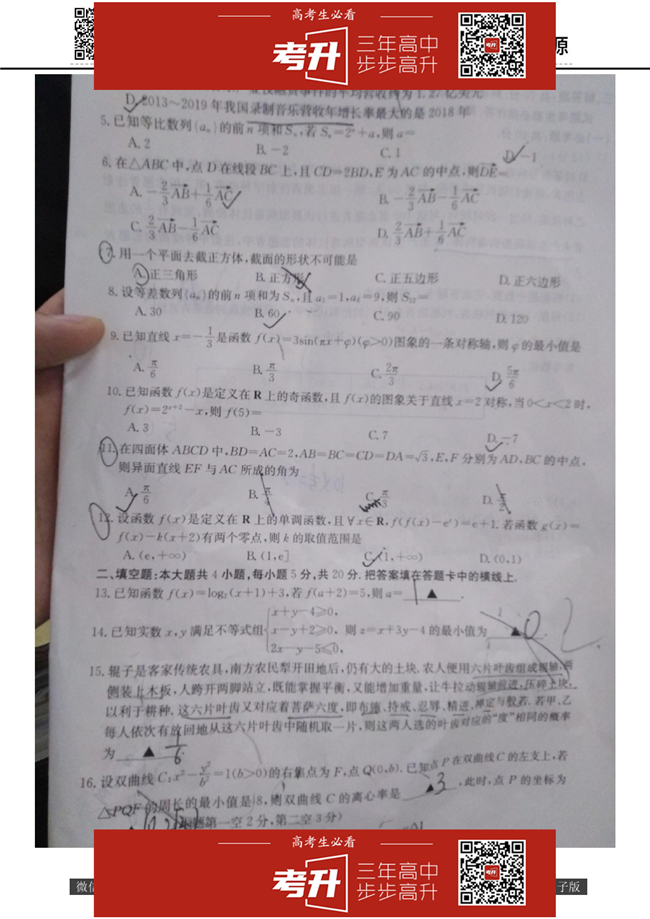 高考生必看
考升
三年高中
步步高升
源
D. 2013～2019年我国录制音乐营收年增长率最大的是2018年
5. 已知等比数列{aₙ}的前n项和Sₙ,若Sₙ=2ⁿ+a,则a=
A. 2 B. -2 C. 1 D. -1
6. 在△ABC中,点D在线段BC上,且CD=2BD,E为AC的中点,则DE=
A. -2/3AB+1/6AC B. -2/3AB-1/6AC
C. 2/3AB-1/6AC D. 2/3AB+1/6AC
7. 用一个平面去截正方体,截面的形状不可能是
A. 正三角形 B. 正方形 C. 正五边形 D. 正六边形
8. 设等差数列{aₙ}的前n项和为Sₙ,且a₂=1,a₆=9,则S₁₂=
A. 30 B. 60 C. 90 D. 120
9. 已知直线x=-1/3是函数f(x)=3sin(πx+φ)(φ>0)图象的一条对称轴,则φ的最小值是
A. π/6 B. π/3 C. 2π/3 D. 5π/6
10. 已知函数f(x)是定义在R上的奇函数,且f(x)的图象关于直线x=2对称,当0<x<2时,
f(x)=2ˣ⁺²-x,则f(5)=
A. 3 B. -3 C. 7 D. -7
11. 在四面体ABCD中,BD=AC=2,AB=BC=CD=DA=√3,E,F分别为AD,BC的中点,
则异面直线EF与AC所成的角为
A. π/6 B. π/4 C. π/3 D. π/2
12. 设函数f(x)是定义在R上的单调函数,且∀x∈R,f(f(x)-eˣ)=e+1.若函数g(x)=
f(x)-k(x+2)有两个零点,则k的取值范围是
A. (e,+∞) B. (1,e] C. (1,+∞) D. (0,1)
二、填空题:本大题共4小题,每小题5分,共20分.把答案填在答题卡中的横线上.
13. 已知函数f(x)=log₂(x+1)+3,若f(a+2)=5,则a= ▲ .
x+y-4≥0,
14. 已知实数x,y满足不等式组 x-y+2≥0, 则z=x+3y-4的最小值为 ▲
2x-y-5≤0,
15. 辊子是客家传统农具,南方农民犁开田地后,仍有大的土块.农人便用六片叶齿组成辊轴,两
侧装上木板,人跨开两脚站立,既能掌握平衡,又能增加重量,让牛拉动辊轴前进,压碎土块,
以利于耕种.这六片叶齿又对应着菩萨六度,即布施、持戒、忍辱、精进、禅定与般若.若甲、乙
每人依次有放回地从这六片叶齿中随机取一片,则这两人选的叶齿对应的“度”相同的概率
为 ▲ 1/6
16. 设双曲线C:x²-y²/b²=1(b>0)的右焦点为F,点Q(0,b).已知点P在双曲线C的左支上,若
△PQF的周长的最小值是8,则双曲线C的离心率是 ▲ 3 ,此时,点P的坐标为
第一空2分,第二空3分)
高考生必看
考升
三年高中
步步高升
微信
子版